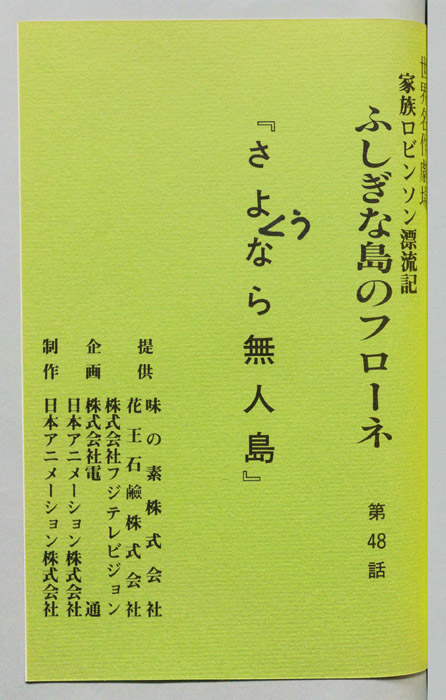 世界名作劇場
家族ロビンソン漂流記
ふしぎな島のフローネ
第48話
『さよなら無人島』
う
提供
味の素株式会社
花王石鹸株式会社
企画
株式会社フジテレビジョン
株式会社電通
日本アニメーション株式会社
制作
日本アニメーション株式会社